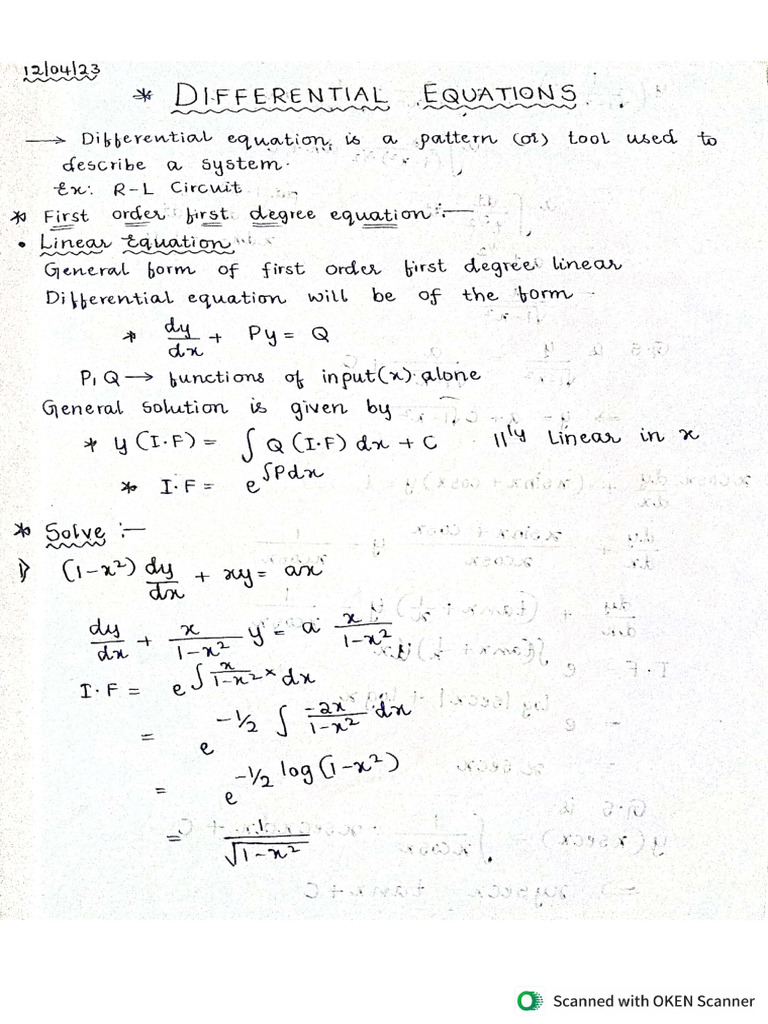 12/04/23
* DIFFERENTIAL EQUATIONS.
→ Differential equation, is a pattern (or) tool used to
describe a system.
Ex: R-L Circuit
* First order first degree equation:-
• Linear Equation
General form of first order first degree linear
Differential equation will be of the form
* dy/dx + Py = Q
P, Q → functions of input(x) alone
General solution is given by
* y (I.F) = ∫ Q (I.F) dx + C   111ly Linear in x
* I.F = e^∫Pdx
* Solve :-
1) (1-x²) dy/dx + xy = ax
dy/dx + x/(1-x²) y = a x/(1-x²)
I.F = e^∫ x/(1-x²) x dx
= e^(-1/2 ∫ -2x/(1-x²) dx)
= e^(-1/2 log (1-x²))
= 1/√(1-x²)
Scanned with OKEN Scanner